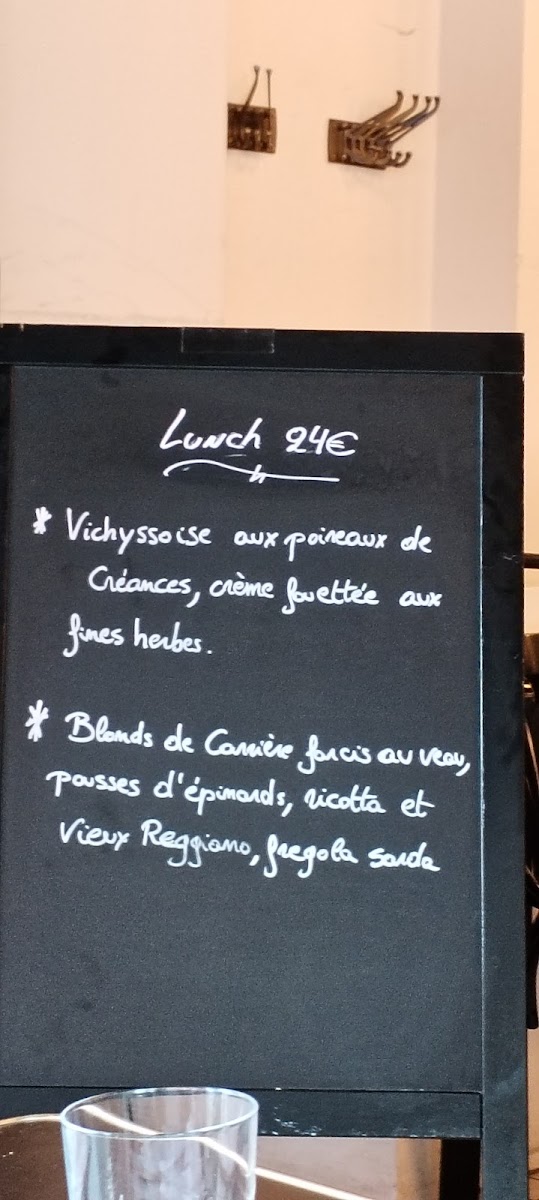 Lunch 24€
* Vichyssoise aux poireaux de
Créances, crème fouettée aux
fines herbes.
* Blonds de Carrière farcis au veau,
pousses d'épinards, ricotta et
Vieux Reggiano, fregola sarda